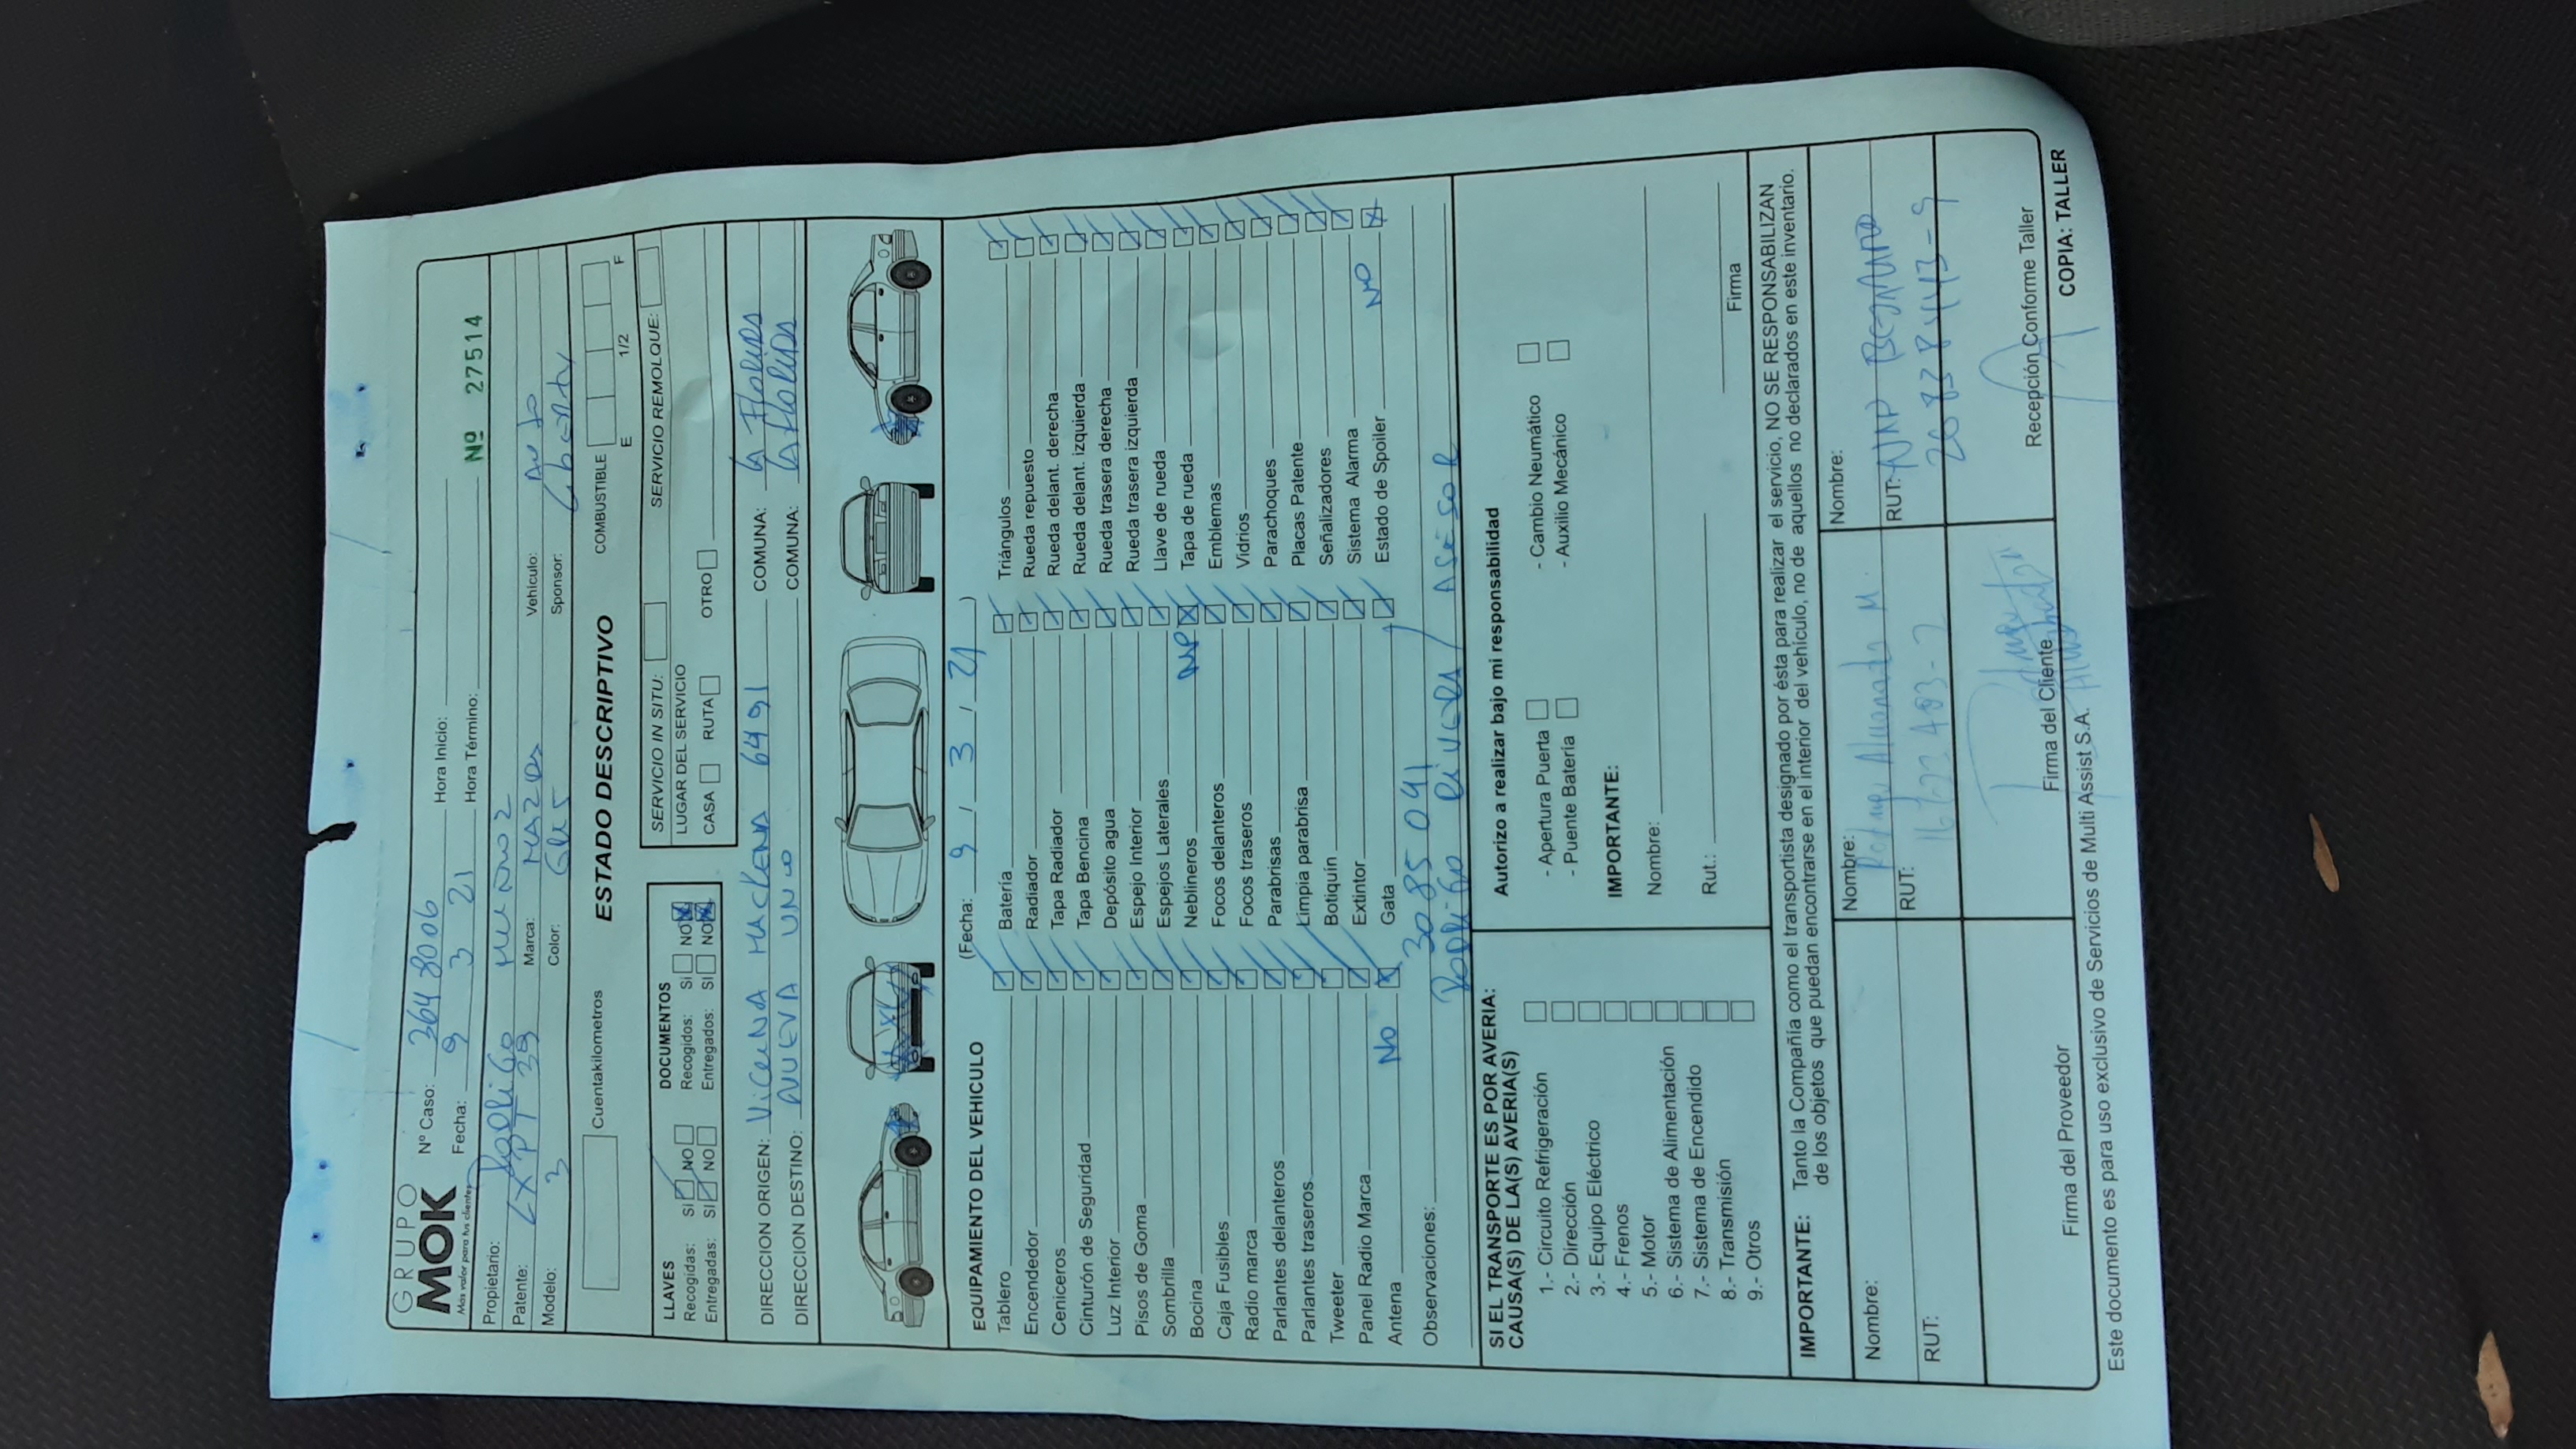 GRUPO
MOK
Más valor para tus clientes
Nº Caso: 3648006 Hora Inicio:
Fecha: 9 3 21 Hora Término: Nº 27514
Propietario: Rodrigo Munoz
Patente: LXPT 39 Marca: MAZDA Vehículo: AUTO
Modelo: 3 Color: GRIS Sponsor: Liberty
Cuentakilometros ESTADO DESCRIPTIVO COMBUSTIBLE
E 1/2 F
LLAVES
Recogidas: SI NO
Entregadas: SI NO
DOCUMENTOS
Recogidos: SI NO
Entregados: SI NO
SERVICIO IN SITU: SERVICIO REMOLQUE:
LUGAR DEL SERVICIO
CASA RUTA OTRO
DIRECCION ORIGEN: VICUNA MACKENA 6491 COMUNA: LA FLORIDA
DIRECCION DESTINO: NUEVA UNO COMUNA: LA FLORIDA
EQUIPAMIENTO DEL VEHICULO (Fecha: 9 / 3 / 21 )
Tablero Batería Triángulos
Encendedor Radiador Rueda repuesto
Ceniceros Tapa Radiador Rueda delant. derecha
Cinturón de Seguridad Tapa Bencina Rueda delant. izquierda
Luz Interior Depósito agua Rueda trasera derecha
Pisos de Goma Espejo Interior Rueda trasera izquierda
Sombrilla Espejos Laterales Llave de rueda
Bocina Neblineros Tapa de rueda
Caja Fusibles Focos delanteros Emblemas
Radio marca Focos traseros Vidrios
Parlantes delanteros Parabrisas Parachoques
Parlantes traseros Limpia parabrisa Placas Patente
Tweeter Botiquín Señalizadores
Panel Radio Marca Extintor Sistema Alarma
Antena No Gata Estado de Spoiler NO
Observaciones: 3085041
RODRIGO RIVERA / ASESOR
SI EL TRANSPORTE ES POR AVERIA:
CAUSA(S) DE LA(S) AVERIA(S)
1.- Circuito Refrigeración
2.- Dirección
3.- Equipo Eléctrico
4.- Frenos
5.- Motor
6.- Sistema de Alimentación
7.- Sistema de Encendido
8.- Transmisión
9.- Otros
Autorizo a realizar bajo mi responsabilidad
- Apertura Puerta - Cambio Neumático
- Puente Batería - Auxilio Mecánico
IMPORTANTE:
Nombre:
Rut.: Firma
IMPORTANTE: Tanto la Compañía como el transportista designado por ésta para realizar el servicio, NO SE RESPONSABILIZAN
de los objetos que puedan encontrarse en el interior del vehículo, no de aquellos no declarados en este inventario.
Nombre:
RUT:
Firma del Proveedor
Nombre:
RUT:
Firma del Cliente
Nombre:
RUT:
Recepción Conforme Taller
Este documento es para uso exclusivo de Servicios de Multi Assist S.A. COPIA: TALLER